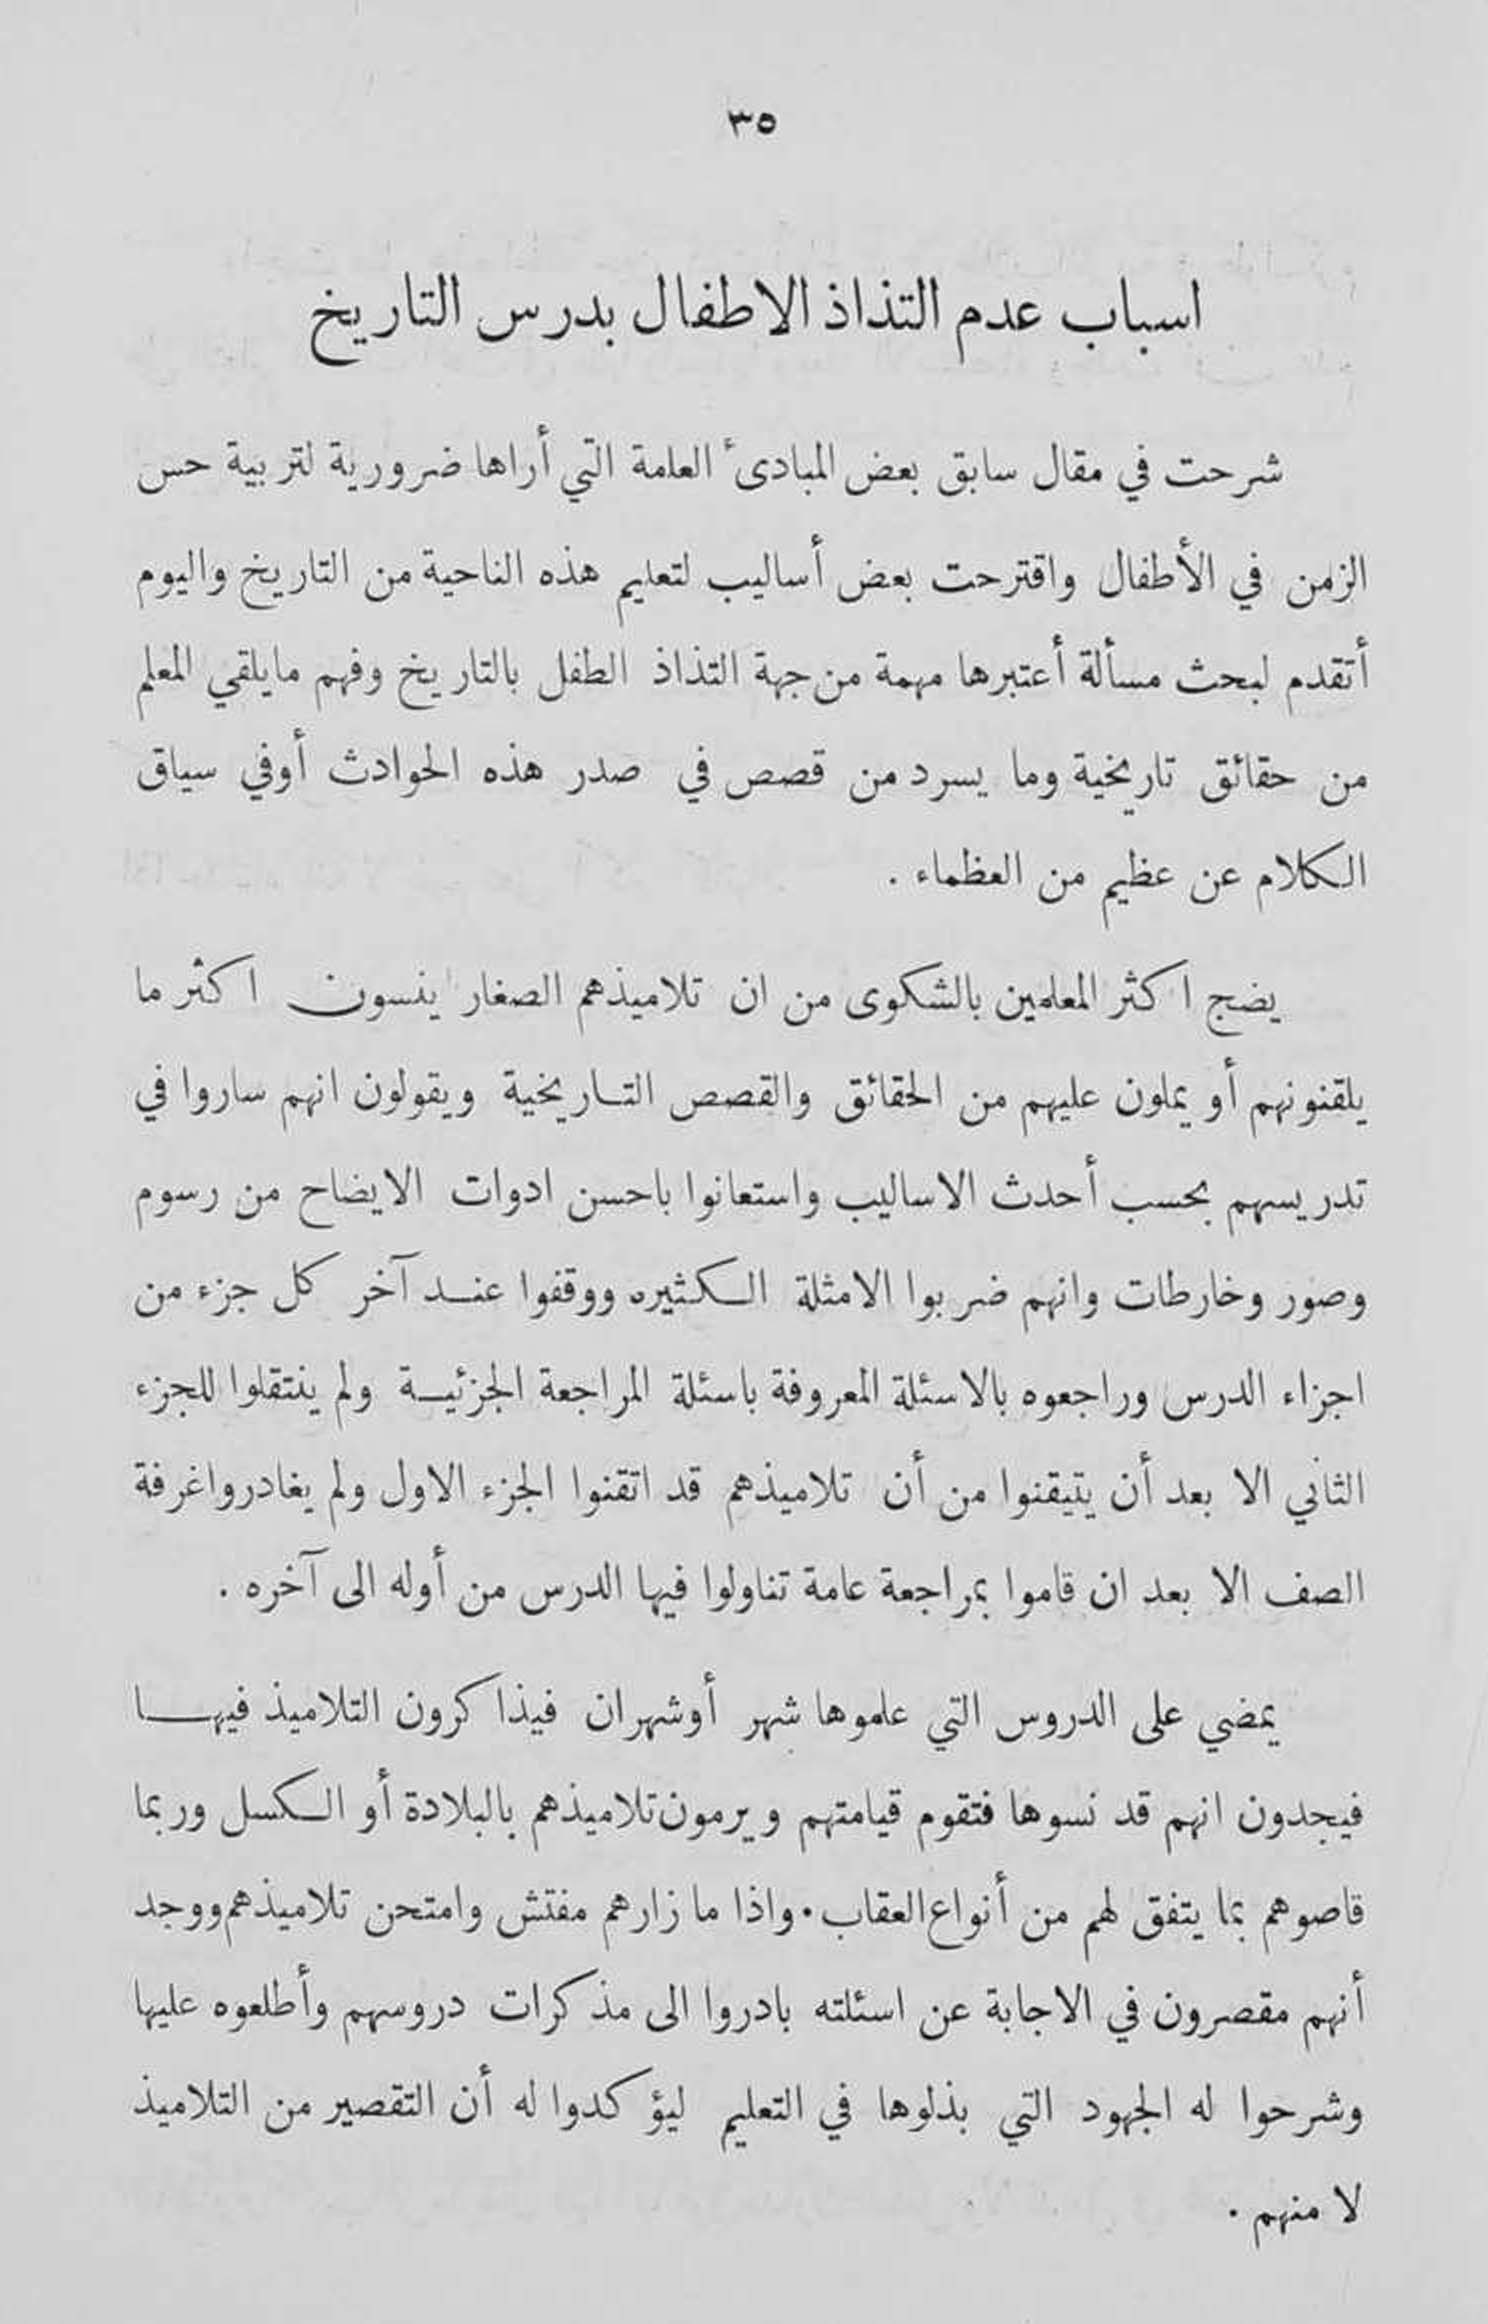 ٣٥
اسباب عدم التذاذ الاطفال بدرس التاريخ
شرحت في مقال سابق بعض المبادىء العامة التي أراها ضرورية لتربية حس
الزمن في الأطفال واقترحت بعض أساليب لتعليم هذه الناحية من التاريخ واليوم
أتقدم لبحث مسألة أعتبرها مهمة من جهة التذاذ الطفل بالتاريخ وفهم مايلقي المعلم
من حقائق تاريخية وما يسرد من قصص في صدر هذه الحوادث أوفي سياق
الكلام عن عظيم من العظماء .
يضج اكثر المعلمين بالشكوى من ان تلاميذهم الصغار ينسون اكثر ما
يلقنونهم أو يملون عليهم من الحقائق والقصص التاريخية ويقولون انهم ساروا في
تدريسهم بحسب أحدث الاساليب واستعانوا باحسن ادوات الايضاح من رسوم
وصور وخارطات وانهم ضربوا الامثلة الكثيره ووقفوا عند آخر كل جزء من
اجزاء الدرس وراجعوه بالاسئلة المعروفة باسئلة المراجعة الجزئية ولم ينتقلوا للجزء
الثاني الا بعد أن يتيقنوا من أن تلاميذهم قد اتقنوا الجزء الاول ولم يغادروا غرفة
الصف الا بعد ان قاموا بمراجعة عامة تناولوا فيها الدرس من أوله الى آخره .
يمضي على الدروس التي علموها شهر أوشهران فيذاكرون التلاميذ فيها
فيجدون انهم قد نسوها فتقوم قيامتهم ويرمون تلاميذهم بالبلادة أو الكسل وربما
قاصوهم بما يتفق لهم من أنواع العقاب . واذا ما زارهم مفتش وامتحن تلاميذهم ووجد
أنهم مقصرون في الاجابة عن اسئلته بادروا الى مذكرات دروسهم وأطلعوه عليها
وشرحوا له الجهود التي بذلوها في التعليم ليؤكدوا له أن التقصير من التلاميذ
لا منهم .